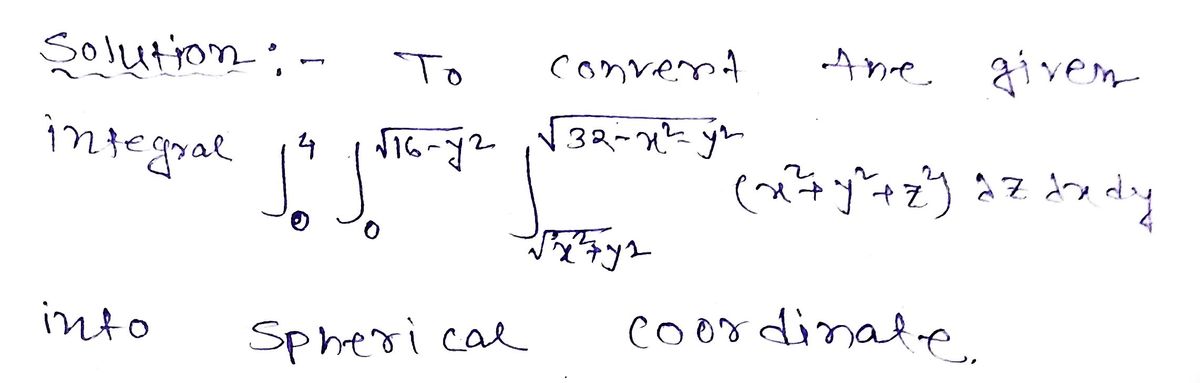 Solution :- To convert the given
integral ∫₀⁴ ∫₀^√(16-y²) ∫_√(x²+y²)^√(32-x²-y²) (x²+y²+z²) dz dx dy
into Spherical coordinate.